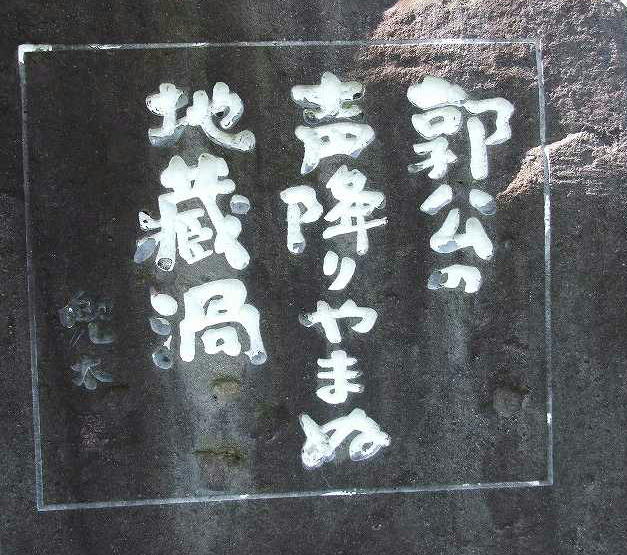 郭公の
声降りやまぬ
地蔵渦